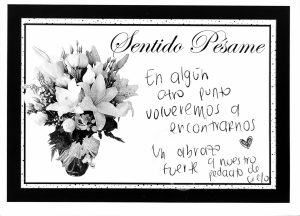 Sentido Pésame
En algún
otro punto
volveremos a
encontrarnos
Un abrazo
fuerte a nuestro
pedacito de
cielo